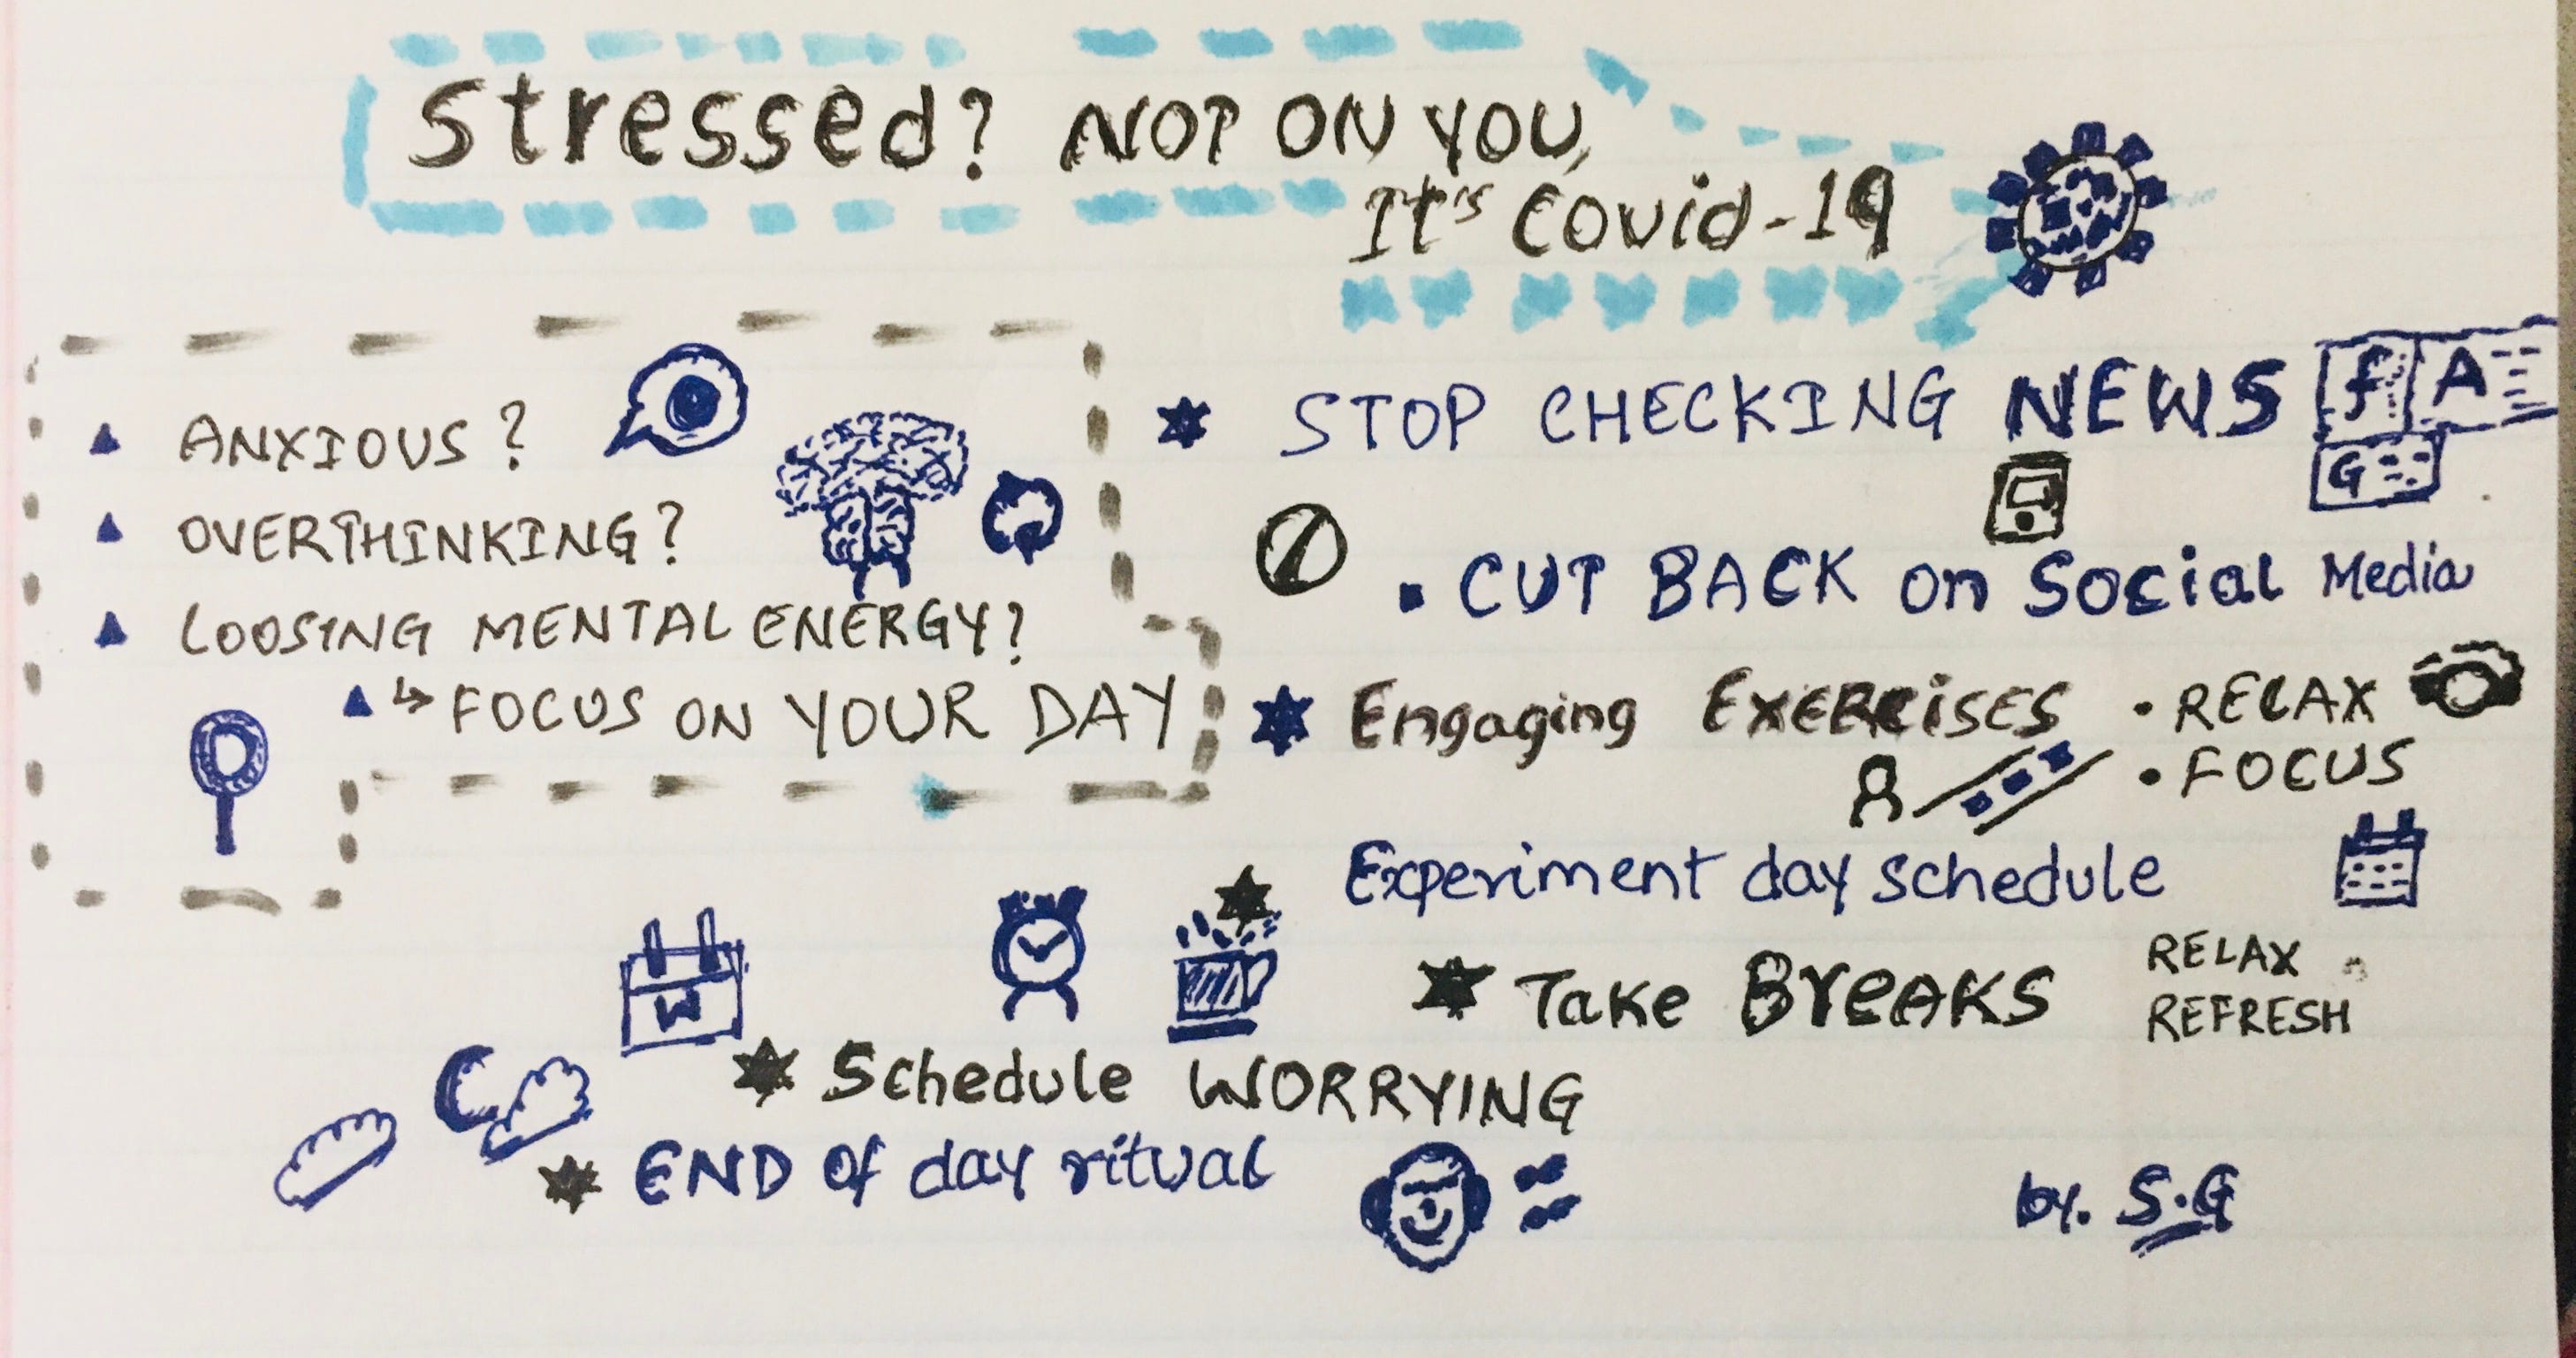 Stressed? NOT ON YOU,
It's Covid-19
ANXIOUS?
OVERTHINKING?
LOOSING MENTAL ENERGY?
↳ FOCUS ON YOUR DAY
STOP CHECKING NEWS
f A
G
• CUT BACK on Social Media
Engaging EXERCISES • RELAX
• FOCUS
Experiment day schedule
Take BreAKS RELAX
REFRESH
W
Schedule WORRYING
END Of day ritual
by. S.G